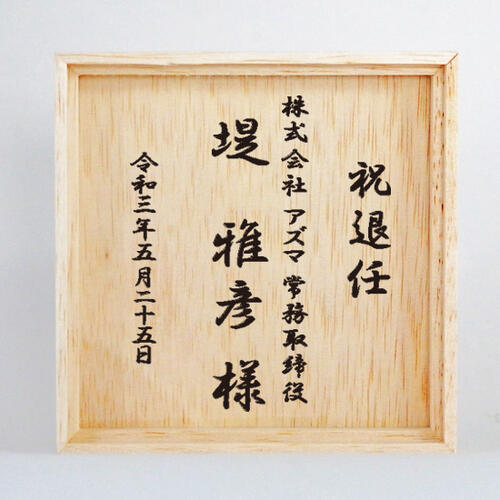 祝退任
株式会社 アズマ 常務取締役
堤 雅彦 様
令和三年五月二十五日